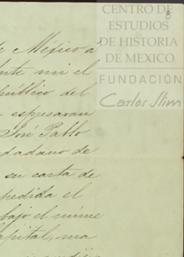 CENTRO DE
ESTUDIOS
DE HISTORIA
DE MEXICO
FUNDACIÓN
Carlos Slim
de Mexico a
ante mi el
público del
espresaran
José Pablo
dadano de
su carta de
pedida el
bajo el núme
apital, ma